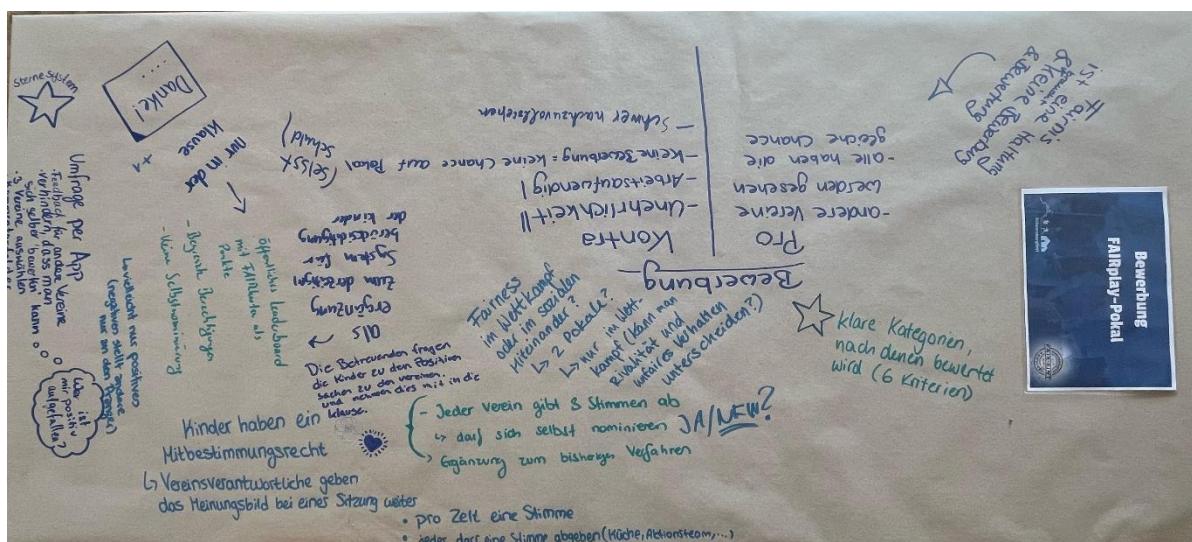 Bewerbung
FAIRplay-Pokal
Fairnis
ist eine Haltung
& keine Bewerbung
& Bewertung
Bewerbung
Pro
- andere Vereine
werden gesehen
- alle haben die
gleiche Chance
Kontra
- Unehrlichkeit!!
- Arbeitsaufwendig!
- Keine Bewerbung = keine Chance auf Pokal (selbst
schuld)
- Schwer nachzuvollziehen
klare Kategorien,
nach denen bewertet
wird (6 Kriterien)
Fairness
im Wettkampf
oder im sozialen
Miteinander?
↳ 2 Pokale?
↳ nur im Wett-
kampf (kann man
Rivalität und
unfaires Verhalten
unterscheiden?)
- Jeder Verein gibt 3 Stimmen ab
↳ darf sich selbst nominieren JA/NEIN?
↳ Ergänzung zum bisherigen Verfahren
als
ergänzung
zum derzeitigen
System für
berücksichtigung
der Kinder
Die Betreuenden fragen
die Kinder zu den Positiven
sachen zu den vereinen.
und nehmen dies mit in die
klause.
Kinder haben ein
Mitbestimmungsrecht
↳ Vereinsverantwortliche geben
das Meinungsbild bei einer Sitzung weiter
• pro Zelt eine Stimme
• jeder darf eine Stimme abgeben (Küche, Aktionsteam, ...)
Danke!
nur in der
Klause
öffentliches leaderboard
mit FAIRhalten als
Punkte
- Begrenzte Berechtigungen
- Keine Selbstnominierung
Sterne System
Umfrage per App
- Feedback für andere Vereine
- verhindern, dass man
sich selber bewerten kann
- 3 Vereine auswählen
↳ vielleicht nur positives
(negatives stellt andere
nur an den Pranger)
Was ist
mir positiv
aufgefallen?